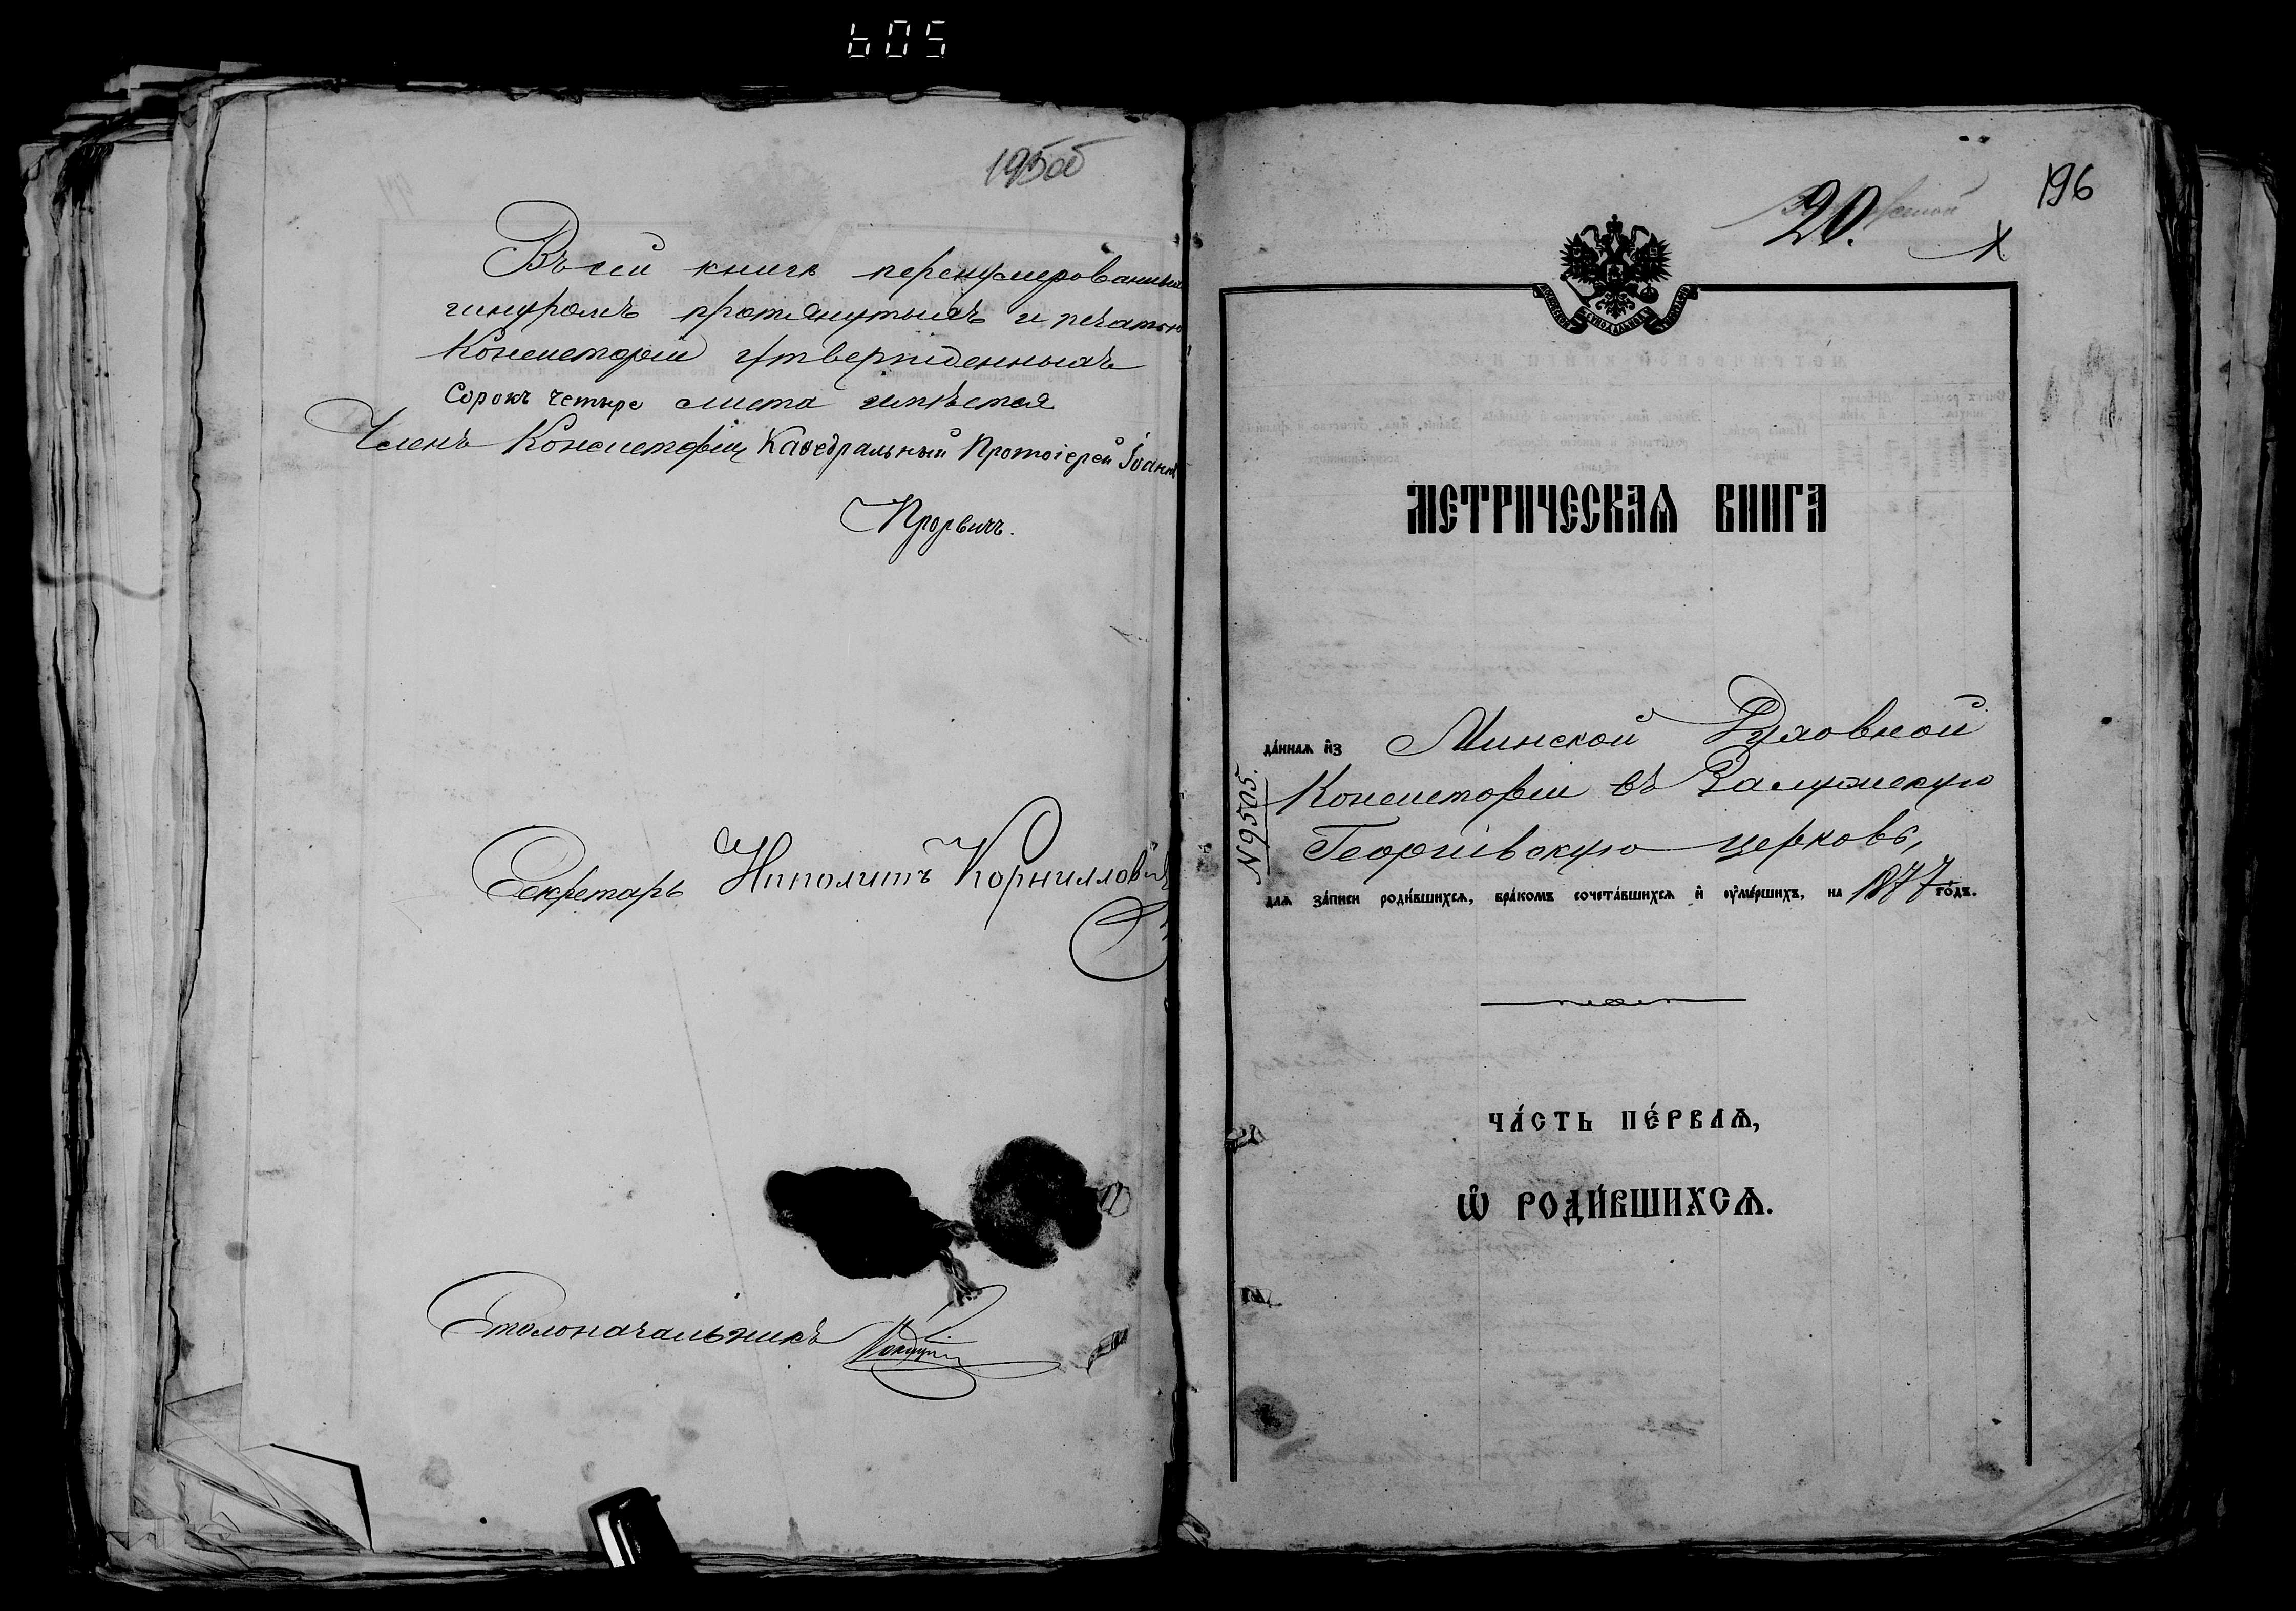 605
195об
Въ сей книгѣ перенумерованныхъ
шнуромъ протянутыхъ и печатью
Консисторіи утвержденныхъ
Сорокъ четыре листа имѣется
Членъ Консисторіи Каѳедральный Протоіерей Іоаннъ
Прорвичъ.
Секретарь Ипполитъ Корнилловичъ
Столоначальникъ
196
20.
МЕТРИЧЕСКАѦ КНИГА
да́ннаѧ и҆з Минской Духовной
Консисторіи въ Залужскую
Георгіевскую церковь,
длѧ за́писи роди́вшихсѧ, бра́комъ сочета́вшихсѧ и҆ ᲂу҆ме́ршихъ, на 1877 го́дъ.
N 9505.
ЧА́СТЬ ПЕ́РВАѦ,
Ѡ҆ РОДИ́ВШИХСѦ.